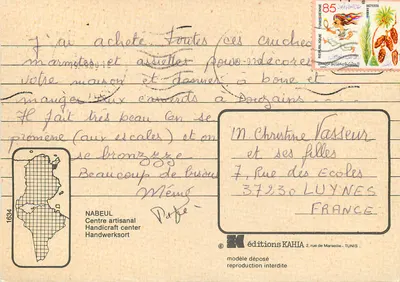 J'ai acheté toutes ces cruches
marmites et assiettes pour décorer
votre maison et donner à boire et
manger aux canards à Douzains...
Il fait très beau (on se
promène (aux escales) et on
se bronzzze
Beaucoup de bisous
Mémé
Papé
M. Christine Vasseur
et ses filles
7, Rue des Ecoles
37230 LUYNES
FRANCE
85
1634
NABEUL
Centre artisanal
Handicraft center
Handwerksort
© éditions KAHIA 2, rue de Marseille - TUNIS
modèle déposé
reproduction interdite